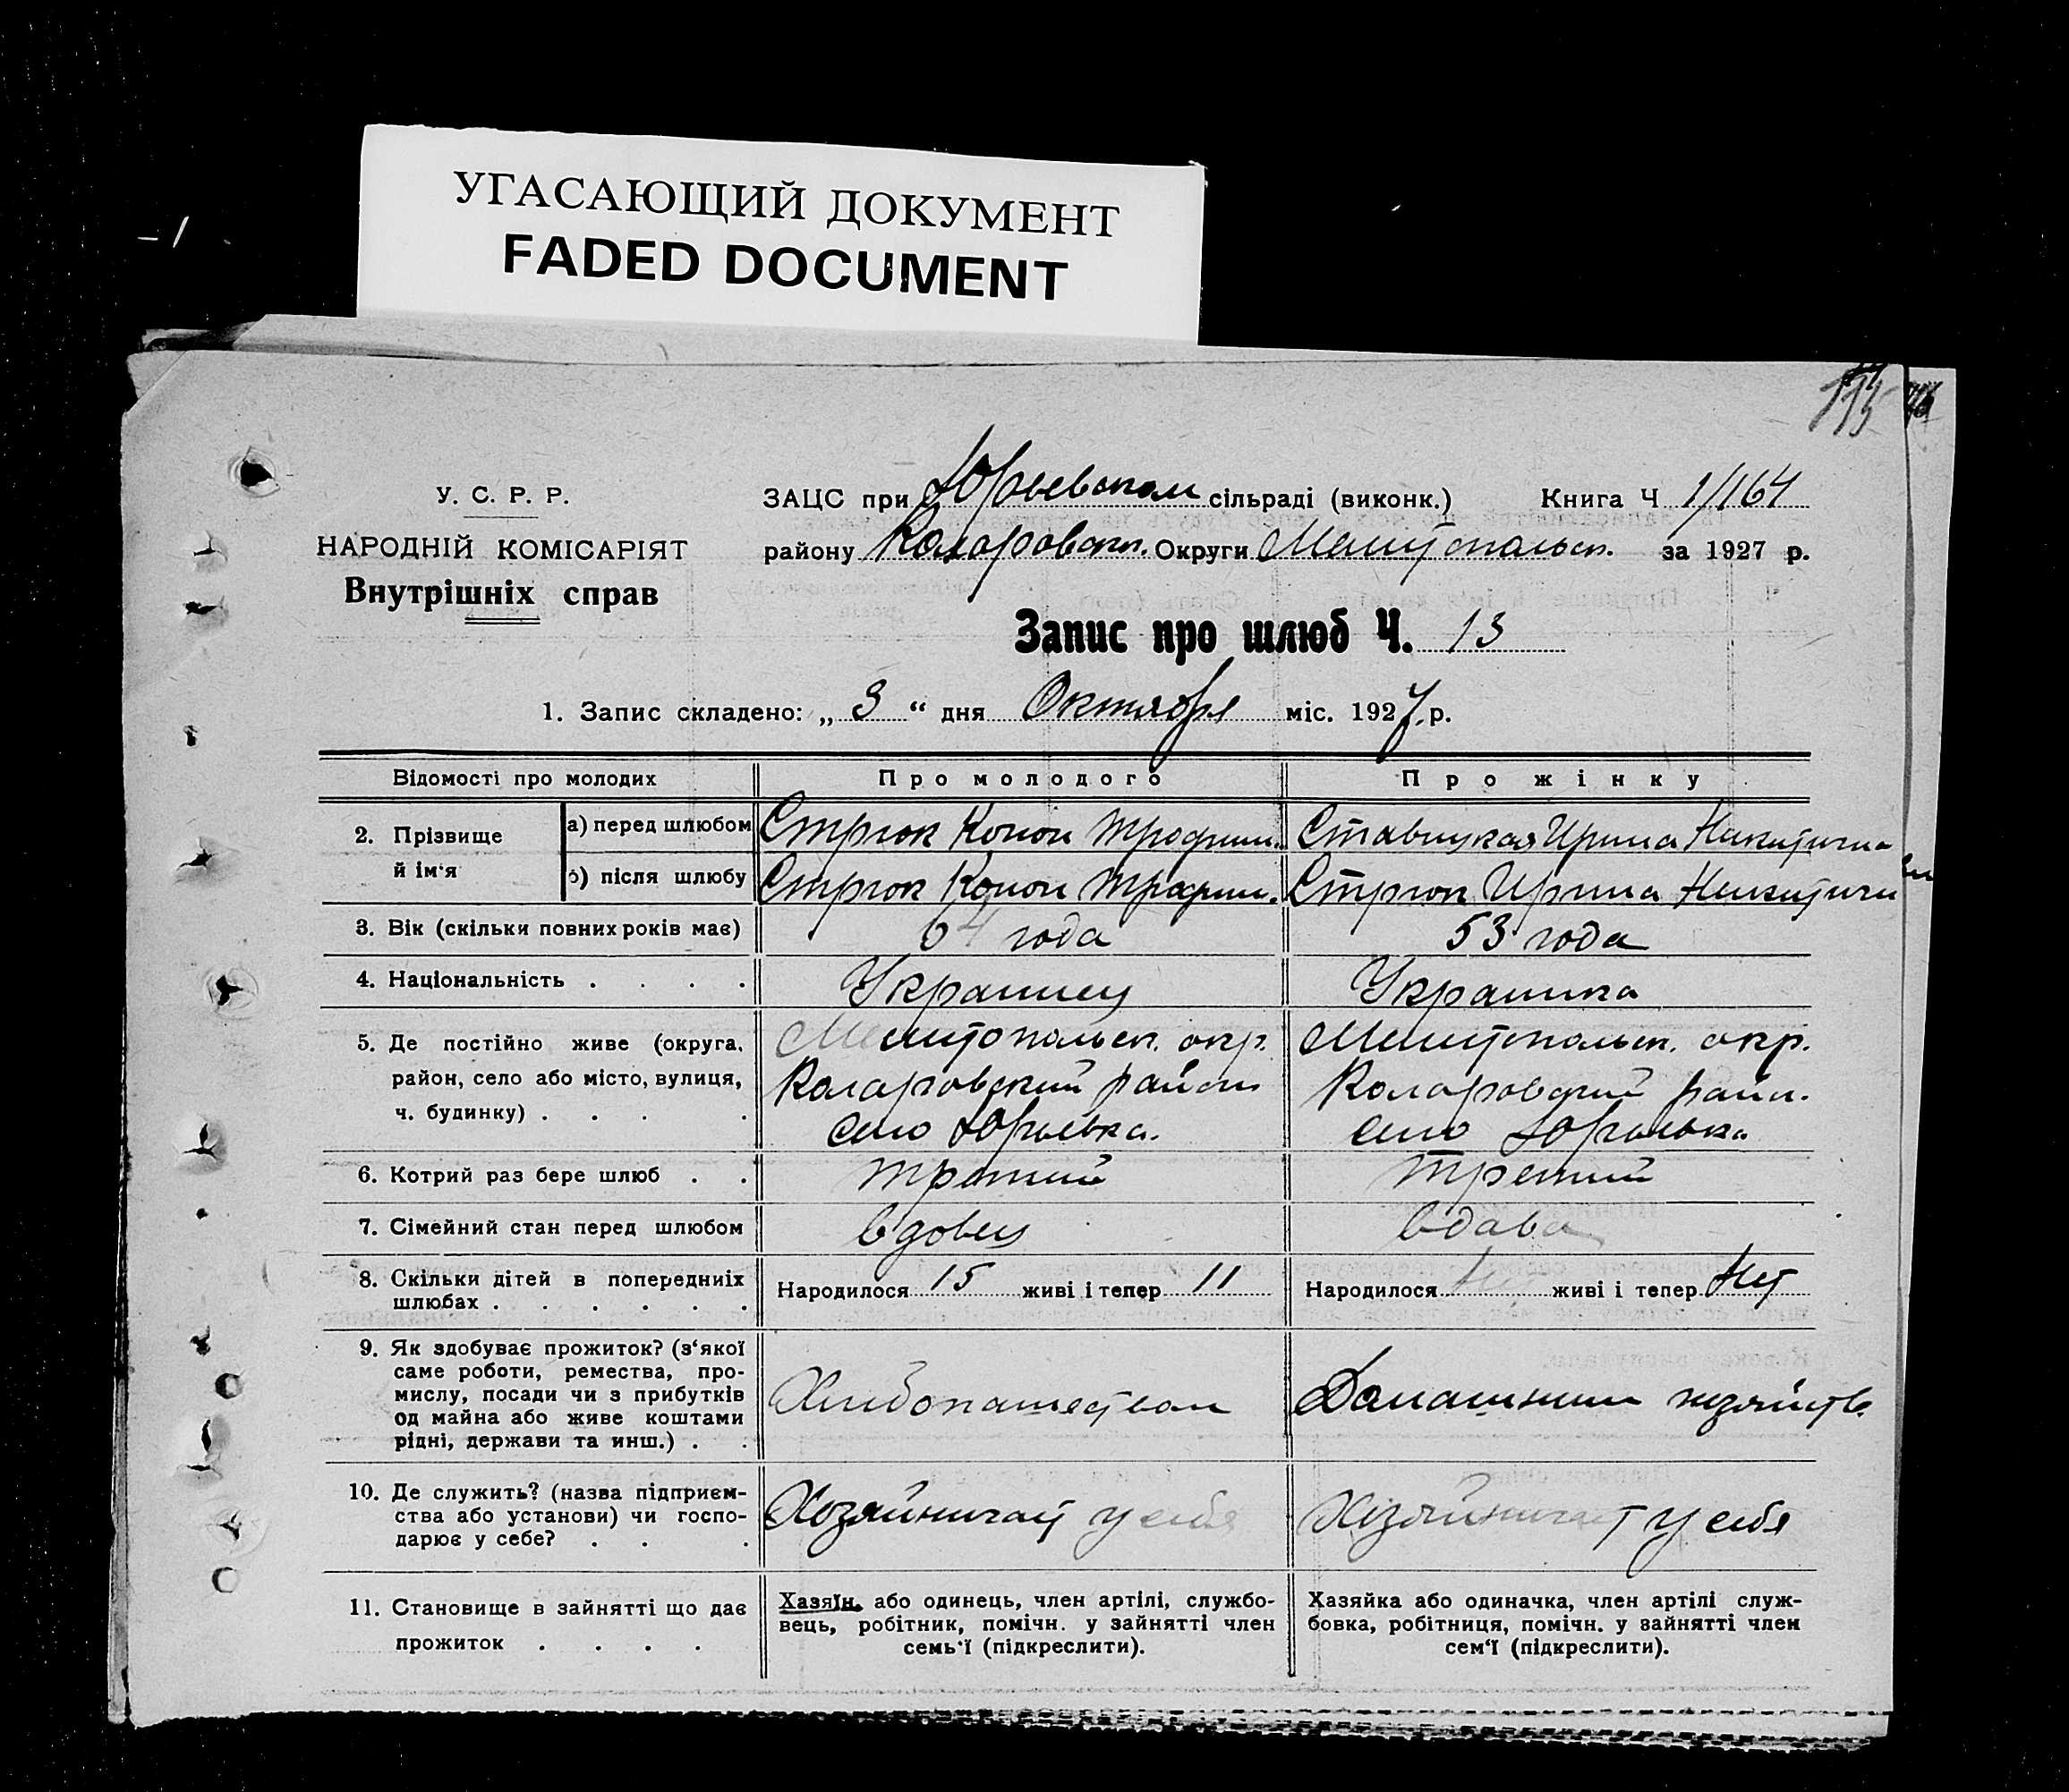 УГАСАЮЩИЙ ДОКУМЕНТ
FADED DOCUMENT
У. С. Р. Р.
НАРОДНІЙ КОМІСАРІЯТ
Внутрішніх справ
ЗАЦС при Юрьевском сільраді (виконк.) Книга Ч 1/164
району Коларовск. Округи Мелитопольск. за 1927 р.
Запис про шлюб Ч. 13
1. Запис складено: „ 3 “ дня Октября міс. 1927 р.
Відомості про молодих
Про молодого
Про жінку
2. Прізвище й ім‘я
а) перед шлюбом
Стрюк Конон Трофим.
Ставицкая Ирина Никитична
б) після шлюбу
Стрюк Конон Трофим.
Стрюк Ирина Никитична
3. Вік (скільки повних років має)
64 года
53 года
4. Національність . . . .
Украинец
Украинка
5. Де постійно живе (округа,
район, село або місто, вулиця,
ч. будинку) . . . .
Мелитопольск. окр.
Коларовский район
село Юрьевка.
Мелитопольск. окр.
Коларовский район.
село Юрьевка
6. Котрий раз бере шлюб . .
третий
третий
7. Сімейний стан перед шлюбом
вдовец
вдава
8. Скільки дітей в попередниіх
шлюбах . . . . . .
Народилося 15 живі і тепер 11
Народилося Нет живі і тепер Нет
9. Як здобуває прожиток? (з‘якої
саме роботи, ремества, про-
мислу, посади чи з прибутків
од майна або живе коштами
рідні, держави та инш.) . .
Хлибопашеством
Домашним хозяйств.
10. Де служить? (назва підприєм-
ства або установи) чи госпо-
дарює у себе? . . .
Хозяйничает у себя
Хозяйничает у себя
11. Становище в зайнятті що дає
прожиток . . . .
Хазяїн, або одинець, член артілі, службо-
вець, робітник, помічн. у зайнятті член
семь‘ї (підкреслити).
Хазяйка або одиначка, член артілі служ-
бовка, робітниця, помічн. у зайнятті член
сем‘ї (підкреслити).